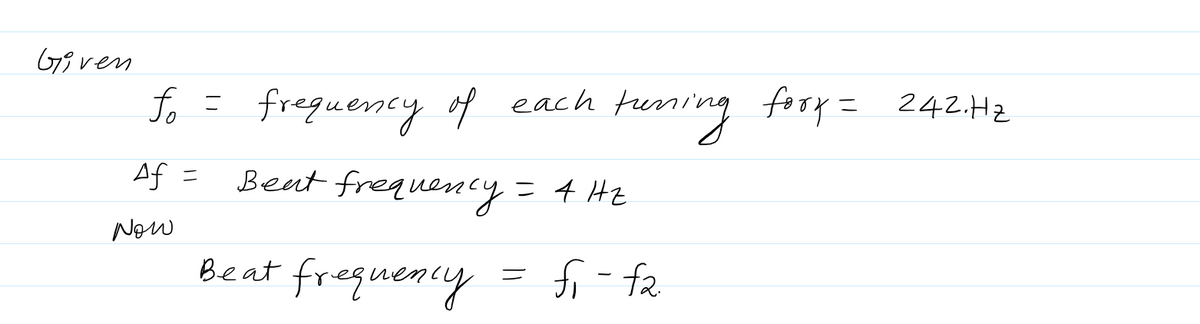 Given
f₀ = frequency of each tuning fork = 242.Hz
Δf = Beat frequency = 4 Hz
Now
Beat frequency = f₁ - f₂.